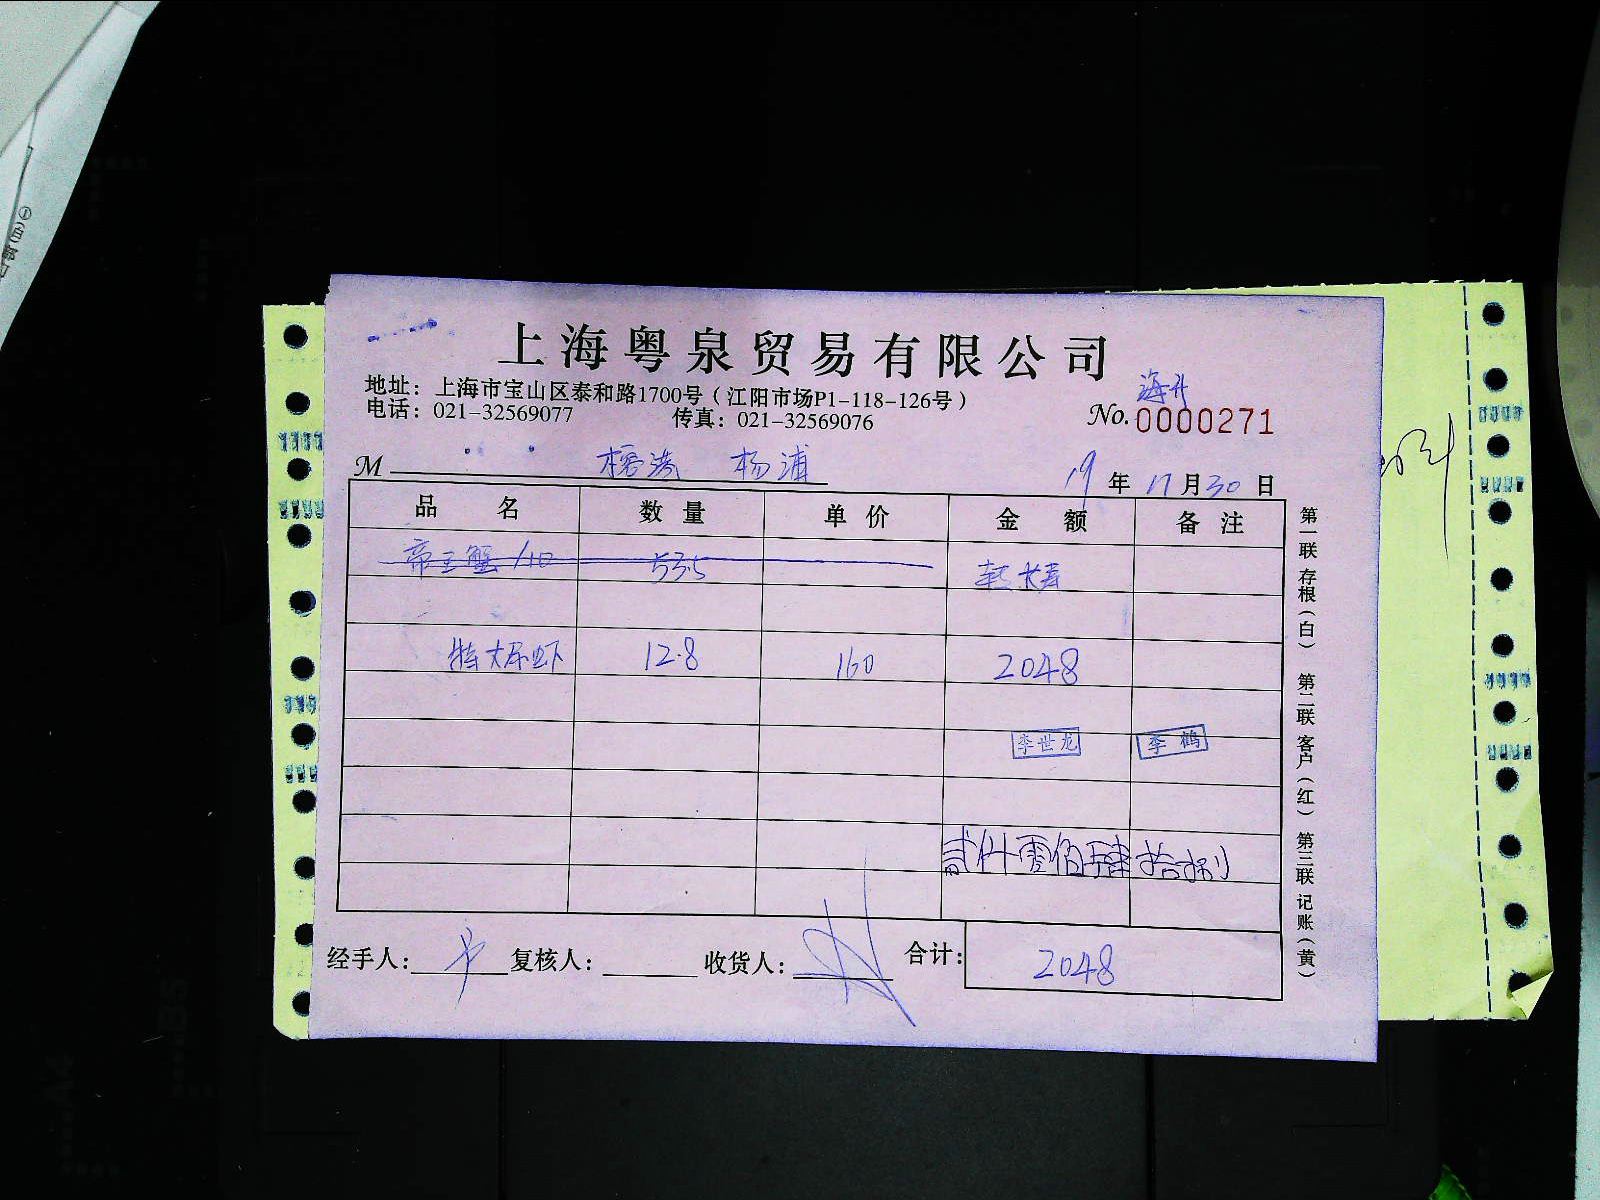 上海粤泉贸易有限公司
地址：上海市宝山区泰和路1700号（江阳市场P1-118-126号）
电话：021-32569077 传真：021-32569076
海升
No.0000271
M 杨浦
19年11月30日
品名 数量 单价 金额 备注
帝王蟹/10 53.5
特大尾虾 12.8 160 2048
李世龙 李鹤
贰仟零佰肆拾捌
经手人： 复核人： 收货人： 合计： 2048
第一联 存根（白） 第二联 客户（红） 第三联 记账（黄）